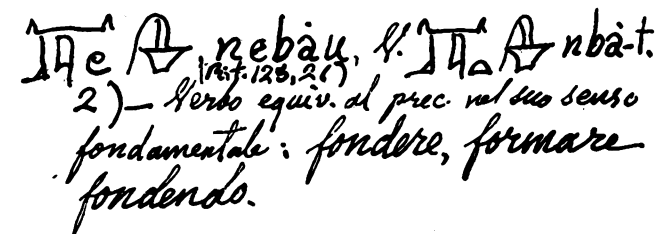 nebàu, V. nbà-t.
2) — Verbo equiv. al prec. nel suo senso
fondamentale: fondere, formare
fondendo.